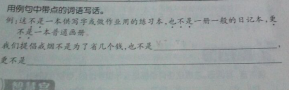 用例句中带点的词语写话。
例:这不是一本供写字或做作业用的练习本,也不是一册一般的日记本,更
不是一本普通画册。
我们提倡勤俭不是为了省几个钱,也不是
更不是